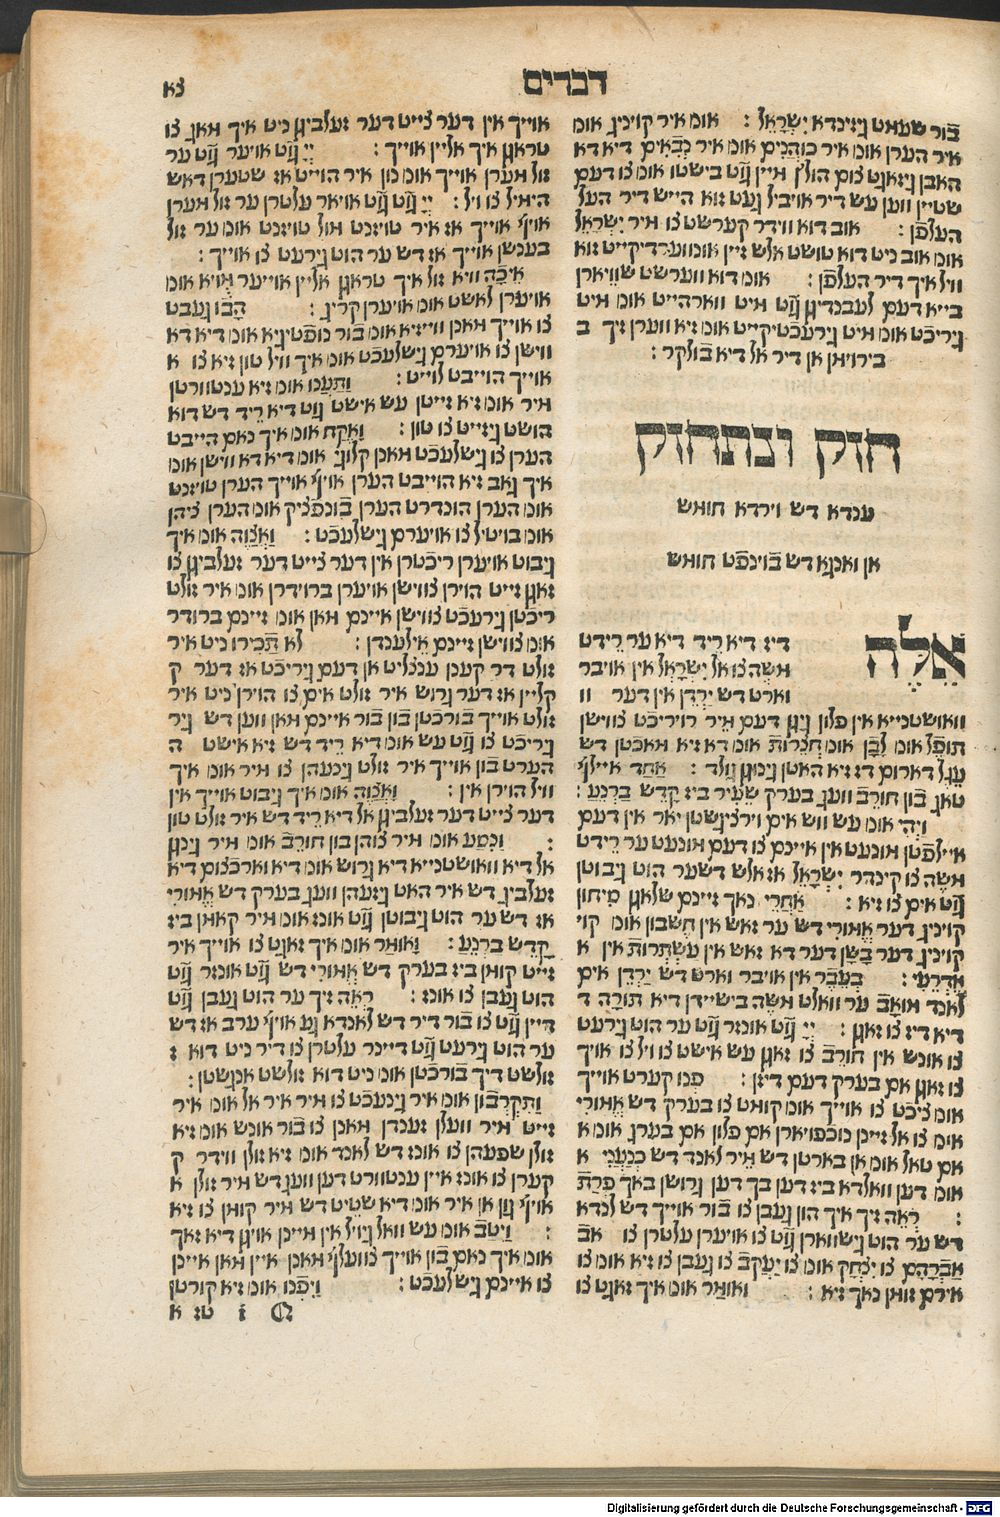 דברים
צא
בֿור שעמט גיזינדא יִשְׂרָאֵל : אומ איר קויניג אומ
איר הערן אומ איר כוהנים אומ איר נביאים דיא דא
האבן גיזאגט צום הולץ מיין גֿוט בישטו אומ צו דעם
שטיין ווען עש דיר אויביל געט זוא הייש דיר העל
העלפֿן : אוב דוא ווידר קערשט צו מיר יִשְׂרָאֵל
אומ אוב ניט דוא טושט אלש זיין אומווערדיקייט זוא
וויל איך דיר העלפֿן : אומ דוא ווערשט שווירן
בייא דעם לעבנדיגן גֿוט מיט ווארהייט אומ מיט
גיריכֿט אומ מיט גירעכֿטיקייט אומ זיא ווערן זיך ב
בירוימן אן דיר אל דיא בֿולקר :
חזק ונתחזק
ענדא דש וירדא חומש
אן ואנגא דש בֿוינפֿט חומש
אֵלֶה
דיז דיא ריד דיא ער רידט
משֶה צו אל יִשְׂרָאֵל אין אויבר
ווארט דש יַרְדֵן אין דער וו
וואושטנייא אין פלון גיגן דעם מֵיר רויריכֿט צווישן
תופֶל אומ לָבָן אומ חֲצֵרוֹת אומ דא זיא מאכֿטן דש
עֵגֶל דארום דז זיא האטן גינוגן גֿולד : אַחַד איילף
טאג בֿון חוֹרֵב וועג בערק שֵעִיר ביז קָדֵש בַּרְנֵעַ :
וַיְהִי אומ עש וואש אים וירציגשטן יאר אין דעם
איילפֿטן מונעט אין איינס צו דעם מונעט ער רידט
משֶה צו קינדר יִשְׂרָאֵל אז אלש דש ער הוט גיבוטן
גֿוט אים צו זיא : אַחֲרֵי נאך זיינם שלאגן סִיחוֹן
קויניג דער אֱמוֹרִי דש ער זאש אין חֶשְבּוֹן אומ קוי
קויניג דער בָּשָן דער דא זאש אין עַשְתָּרוֹת אין א
אֶדְרֶעִי : בְּעֵבֶר אין אויבר ווארט דש יַרְדֵן אים
לאנד מוֹאָב ער וואלט משֶה בישיידן דיא תּוֹרָה ד
דיא דיז צו זאגן : יְיָ גֿוט אונזר גֿוט ער הוט גירעט
צו אונש אין חוֹרֵב צו זאגן עש אישט צו ויל צו אויך
צו זאגן אם בערק דעם דיזן : פְּנוּ קערט אוייך
אומ ציכֿט צו אוייך אומ קומט צו בערק דש אֱמוֹרִי
אומ צו אל זיינן נוכֿפוירן אם פלון אם בערג אומ א
אם טאל אומ אן בארטן דש מֵיר לאנד דש כְּנַעֲנִי א
אומ דען וואלדא ביז דען בך דען גרושן באך פְּרָת
: רְאֵה זיך איך הון געבן צו בֿור אוייך דש לנדא
דש ער הוט גישווארן גֿוט צו אויערן עלטרן צו אב
אַבְרָהָם צו יִצְחָק אומ צו יַעֲקֹב צו געבן צו זיא אומ צו
אירם זומן נאך זיא : וָאוֹמַר אומ איך זאגט צו
אוייך אין דער צייט דער זעלביגן ניט איך מאג צו
טראגן איך אליין אוייך : יְיָ גֿוט אויער גֿוט ער
זול מערן אוייך אומ נון איר הוייט אז שטערן דאש
הימיל צו ויל : יְיָ גֿוט גֿוט אויאר עלטרן ער זול מערן
אויף אוייך אז איר טויזנט מול טויזנט אומ ער זול
בענשן אוייך אז דש ער הוט גירעט צו אוייך :
אֵיכָה וויא זול איך טראגן אליין אוייער מויא אומ
אויערן לאשט אומ אויערן קריג : הָבוּ געבט
צו אוייך מאנן ווייזיא אומ בֿור נופֿטיגיא אומ דיא דא
ווישן צו אוירם גישלעכֿט אומ איך וויל טון זיא צו א
אוייך הוייבט לוייט : וַתַּעֲנוּ אומ זיא ענטוורטן
מיר אומ זיא זייטן עש אישט גוט דיא ריד דש דוא
הושט גיזייט צו טון : וָאֶקַּח אומ איך נאם הייבט
הערן צו גישלעכֿט מאנן קלוגי אומ דיא דא ווישן אומ
איך גאב זיא הוייבט הערן אויף אוייך הערן טויזנט
אומ הערן הונדרט הערן בֿונפֿציק אומ הערן ציהן
אומ בויטיל צו אוירם גישלעכֿט : וָאֲצַוֶּה אומ איך
גיבוט אויערן ריכֿטרן אין דער צייט דער זעלביגן צו
זאגן זייט הוירן צווישן אויערן ברוידרן אומ איר זולט
ריכֿטן גירעכֿט צווישן איינם מאן אומ זיינם ברודר
אומ צווישן זיינם אֵילענדן : לֹא תַכִּירוּ ניט איר
זולט דר קענן ענצליט אן דעם גיריכֿט אז דער ק
קליין אז דער גרוש איר זולט אים צו הוירן ניט איר
זולט אוייך בֿורכֿטן בֿון בֿור איינם מאן ווען דש גיר
גיריכֿט צו גֿוט עש אומ דיא ריד דש זיא אישט ה
הערט בֿון אוייך איר זולט גינעהן צו מיר אומ איך
וויל הוירן אין : וָאֲצַוֶּה אומ איך גיבוט אוייך אין
דער צייט דער זעלביגן אל דיא ריד דש איר זולט טון
: וַנִּסַּע אומ מיר צוהן בֿון חוֹרֵב אומ מיר גינגן
אל דיא וואושטנייא דיא גרוש אומ דיא וארכֿצום דיא
זעלביג דש איר האט גיזעהן ווען בערק דש אֱמוֹרִי
אז דש ער הוט גיבוטן גֿוט אונז אומ מיר קאמן ביז
קָדֵש בַּרְנֵעַ : וָאוֹמַר אומ איך זאגט צו אוייך איר
זייט קומן ביז בערק דש אֱמוֹרִי דש גֿוט אונזר גֿוט
הוט געבן צו אונז : רְאֵה זיך ער הוט געבן גֿוט
דיין גֿוט צו בֿור דיר דש לאנדא גע אויף ערב אז דש
ער הוט גירעט גֿוט דיינר עלטרן צו דיר ניט דוא ז
זולשט דיך בֿורכֿטן אומ ניט דוא זולשט אנגשטן :
וַתִּקְרְבוּן אומ איר גינעכֿט צו מיר איר אל אומ איר
זייט מיר וועלן זענדן מאנן צו בֿור אונש אומ זיא
זולן שפעהן צו אונז דש לאנד אומ זיא זולן ווידר ק
קערן צו אונז איין ענטוורט דען וועג דש מיר זולן א
אויף גון אן איר אומ דיא שטיט דש מיר קומן צו זיא
: וַיִּיטַב אומ עש וואל גיויל אין מיינן אויגן דיא זאך
אומ איך נאם בֿון אוייך צוועלף מאנן איין מאן איינן
צו איינם גישלעכֿט : וַיִּפְנוּ אומ זיא קורטן
Q i טז א